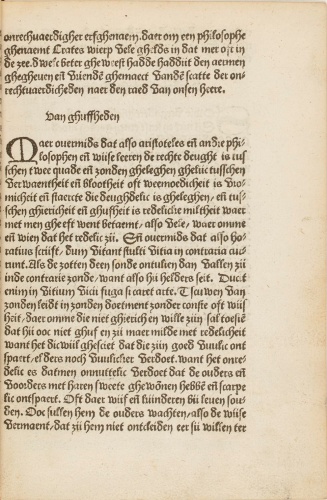 onrechuaerdigher erfghenaem. daer om een philosophe
ghenaemt Crates wierp vele ghelds in dat mer ost in
de zee. dwelc beter gheweest hadde haddijt den aermen
ghegheuen eñ vriendē ghemaect vandē scatte der on-
rechtuaerdicheden naer den raed van onsen heere.
Van ghuffheden
Maer ouermids dat also aristoteles eñ andre phi-
losophen eñ wijse leeren de rechte deught is tus
schen twee quade eñ zonden gheleghen ghelijc tusschen
verwaentheit eñ blootheit oft weemoedicheit is vro-
micheit eñ staercte die deughdelic is gheleghen, eñ tus-
schen ghiericheit eñ ghufheit is redelicke miltheit waer
met men gheeft went betaemt, also vele, waer omme
eñ wien dat het redelic zij. Eñ ouermids dat also ho-
ratius scrijft, dum vitant stulti vitia in contraria cur-
runt. Als de zotten deen sonde ontulien dan vallen zij
inde contrarie zonde, want also hij helders seit. Ducit
enim in vitium vici fuga si caret arte. Tscuwen van
zonden leidt in zonden doetment zonder conste oft wijs
heit, daer omme die niet ghierich eñ wille zijn sal toesiē
dat hij ooc niet ghuf eñ zij maer milde met redelicheit
want het dicwijl ghesciet dat die zijn goed vuulic ont
spaert, elders noch vuulicker verdoet. want het onre-
delic es datmen onnuttelic verdoet dat de ouders eñ
voorders met haren sweete ghewōnen hebbē eñ scarpe
lic ontspaert. Oft daer wijf eñ kijnderen bij leuen sou-
den. Ooc sullen hem de ouders wachten, also de wijse
vermaent, dat zij hem niet ontcleiden eer sij willen ter